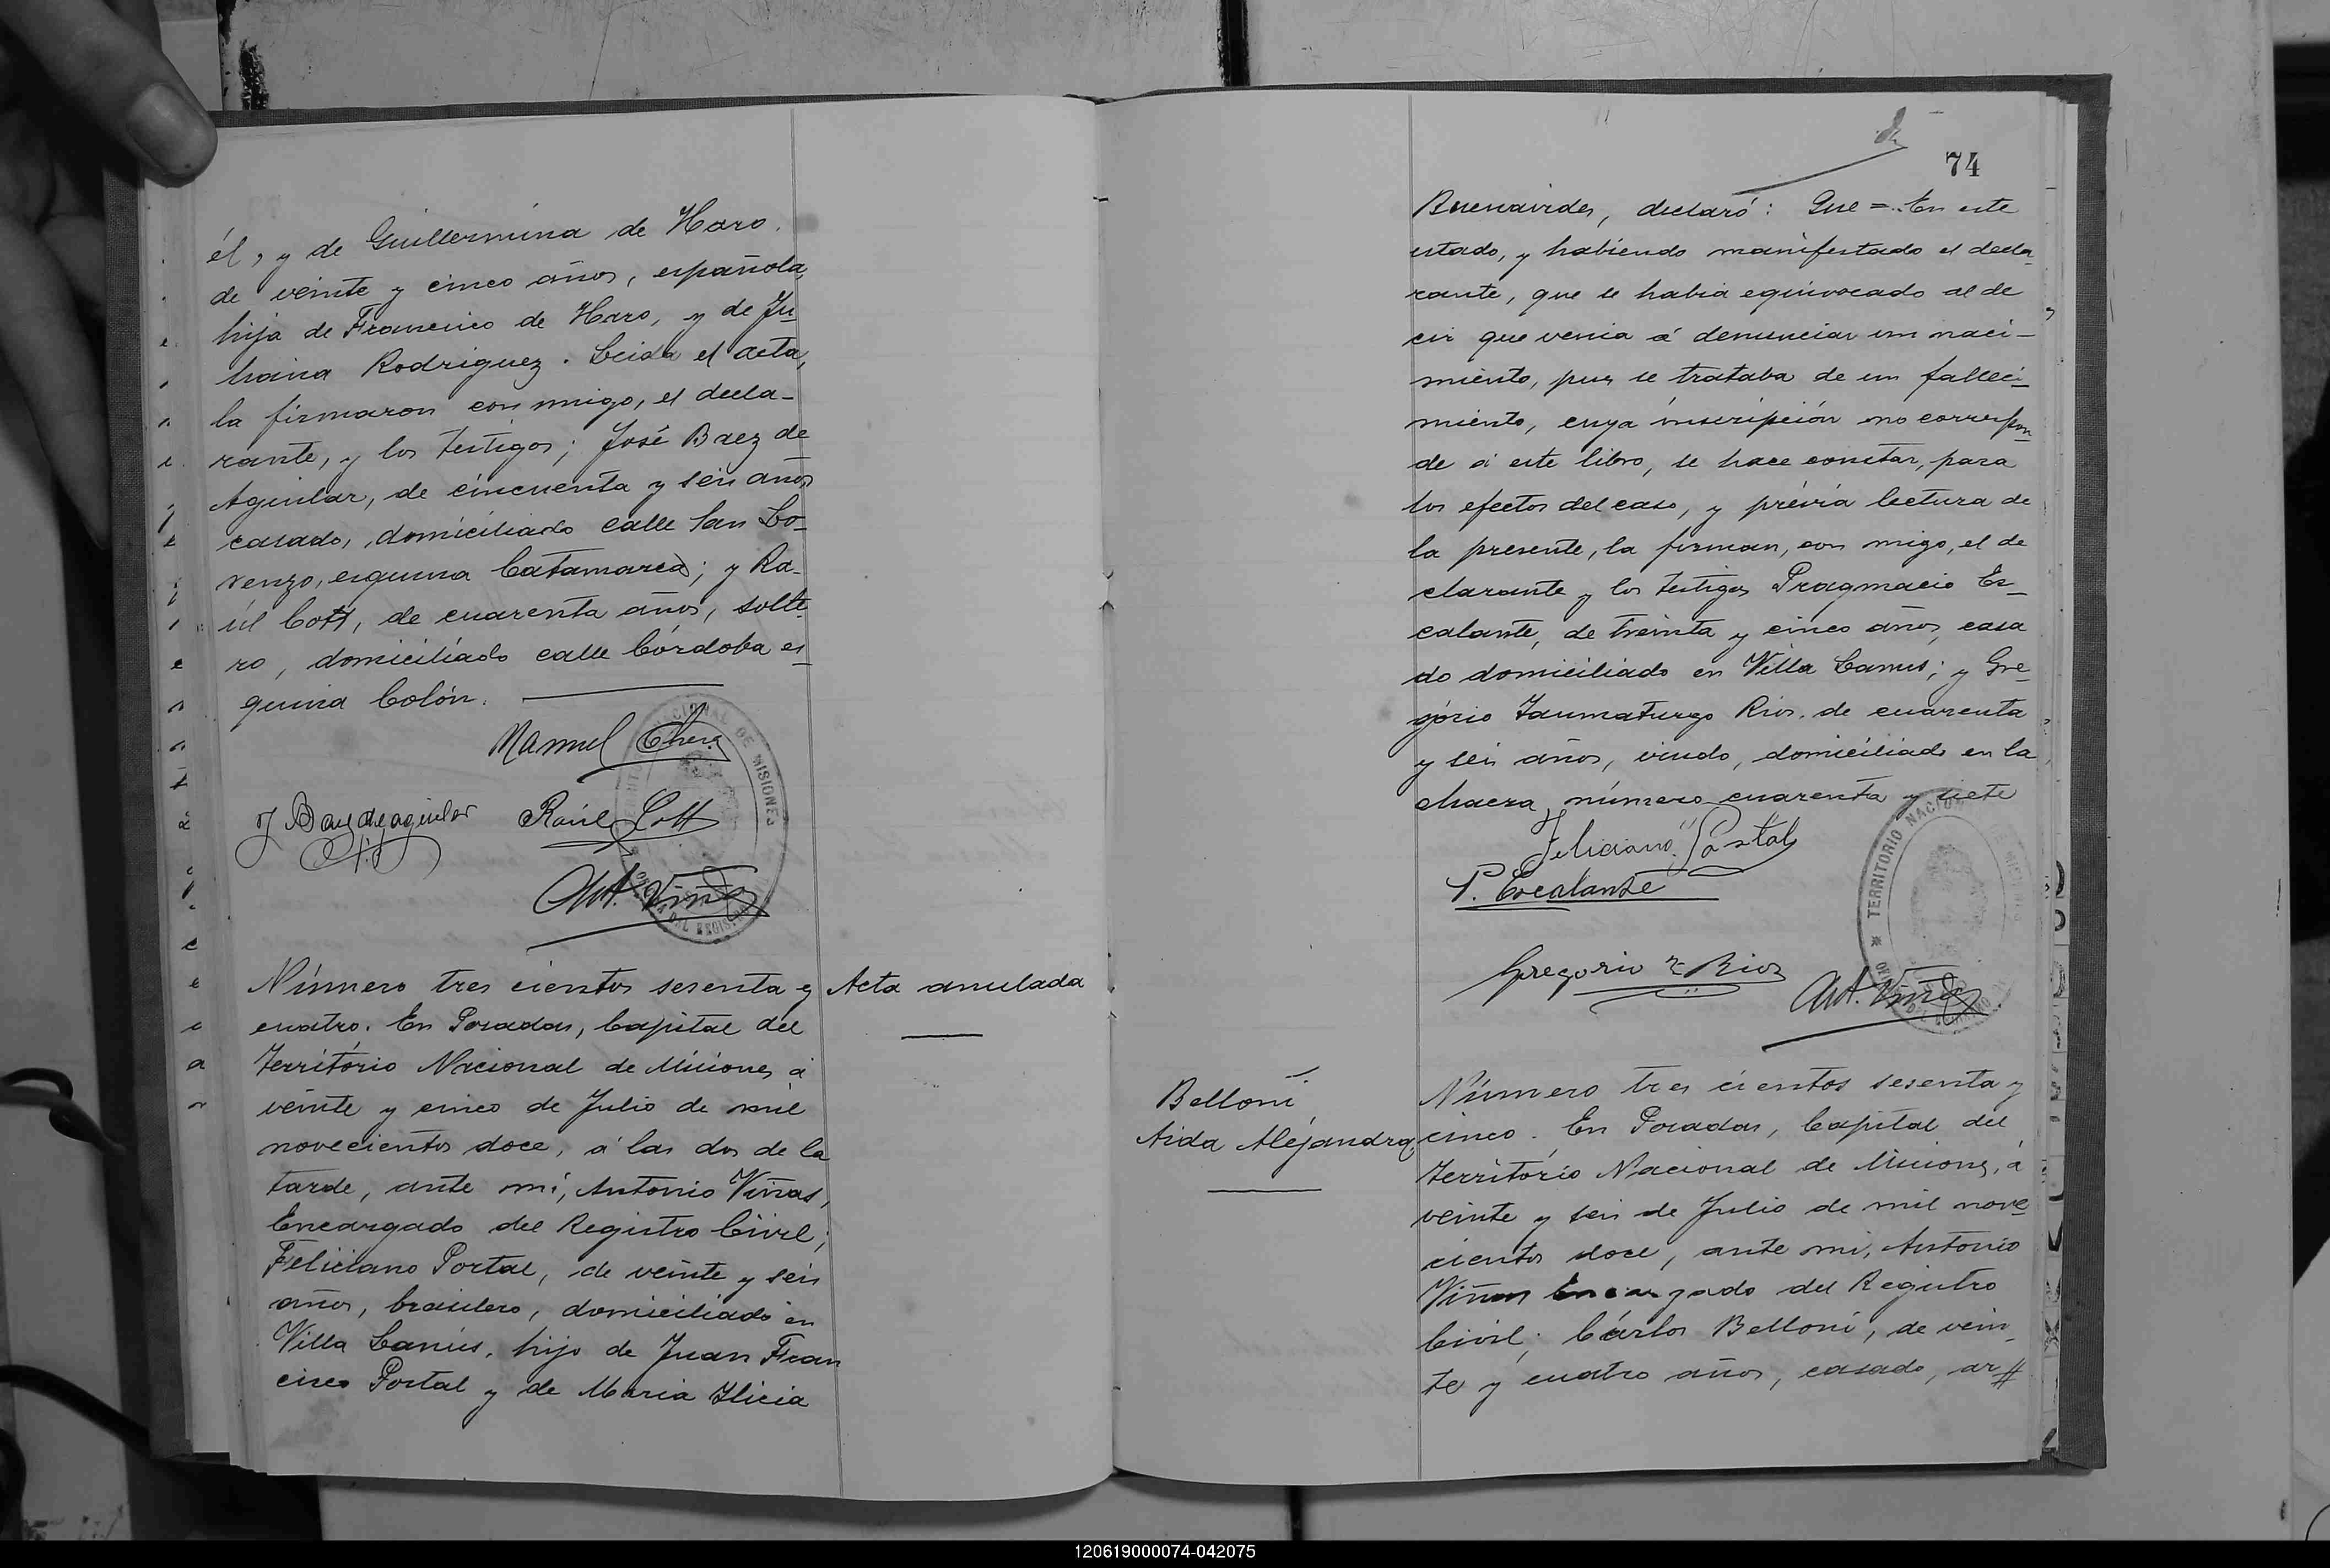 él, y de Guillermina de Haro,
de veinte y cinco años, española,
hija de Francisco de Haro, y de Ju-
liana Rodriguez. Leida el acta,
la firmaron con migo, el decla-
rante, y los testigos; José Baez de
Aguilar, de cincuenta y seis años
casado, domiciliado calle San Lo-
renzo, esquina Catamarca; y Ra-
úl Cott, de cuarenta años, solte-
ro, domiciliado calle Córdoba es-
quina Colón.
Manuel
J Baez de aguilar Raúl Cott
Ant. Viñas
Número tres cientos sesenta y
cuatro. En Posadas, Capital del
Territorio Nacional de Misiones, á
veinte y cinco de Julio de mil
novecientos doce, á las dos de la
tarde, ante mi, Antonio Viñas,
Encargado del Registro Civil;
Feliciano Portal, de veinte y seis
años, brasilero, domiciliado en
Villa Lanús, hijo de Juan Fran
cisco Portal y de Maria Ilicia
Acta anulada
74
declaró: Que =. En este
estado, y habiendo manifestado el decla-
rante, que se habia equivocado al de
cir que venia á denunciar un naci-
miento, pues se trataba de un falleci-
miento, cuya inscripción no correspon-
de á este libro, se hace constar, para
los efectos del caso, y prévia lectura de
la presente, la firman, con migo, el de
clarante y los testigos Pragmacio Es-
calante, de treinta y cinco años, casa
do domiciliado en Villa Lanus; y Gre-
gorio Taumaturgo Rios, de cuarenta
y seis años, viudo, domiciliado en la
chacra número cuarenta y siete
Feliciano Portal
P. Escalante
Gregorio T. Rios
Ant. Viñas
TERRITORIO NACIONAL DE MISIONES
Belloni
Aida Alejandra
Número tres cientos sesenta y
cinco. En Posadas, Capital del
Territorio Nacional de Misiones, á
veinte y seis de Julio de mil nove
cientos doce, ante mi, Antonio
Viñas Encargado del Registro
Civil; Cárlos Belloni, de vein-
te y cuatro años, casado, ar//
120619000074-042075